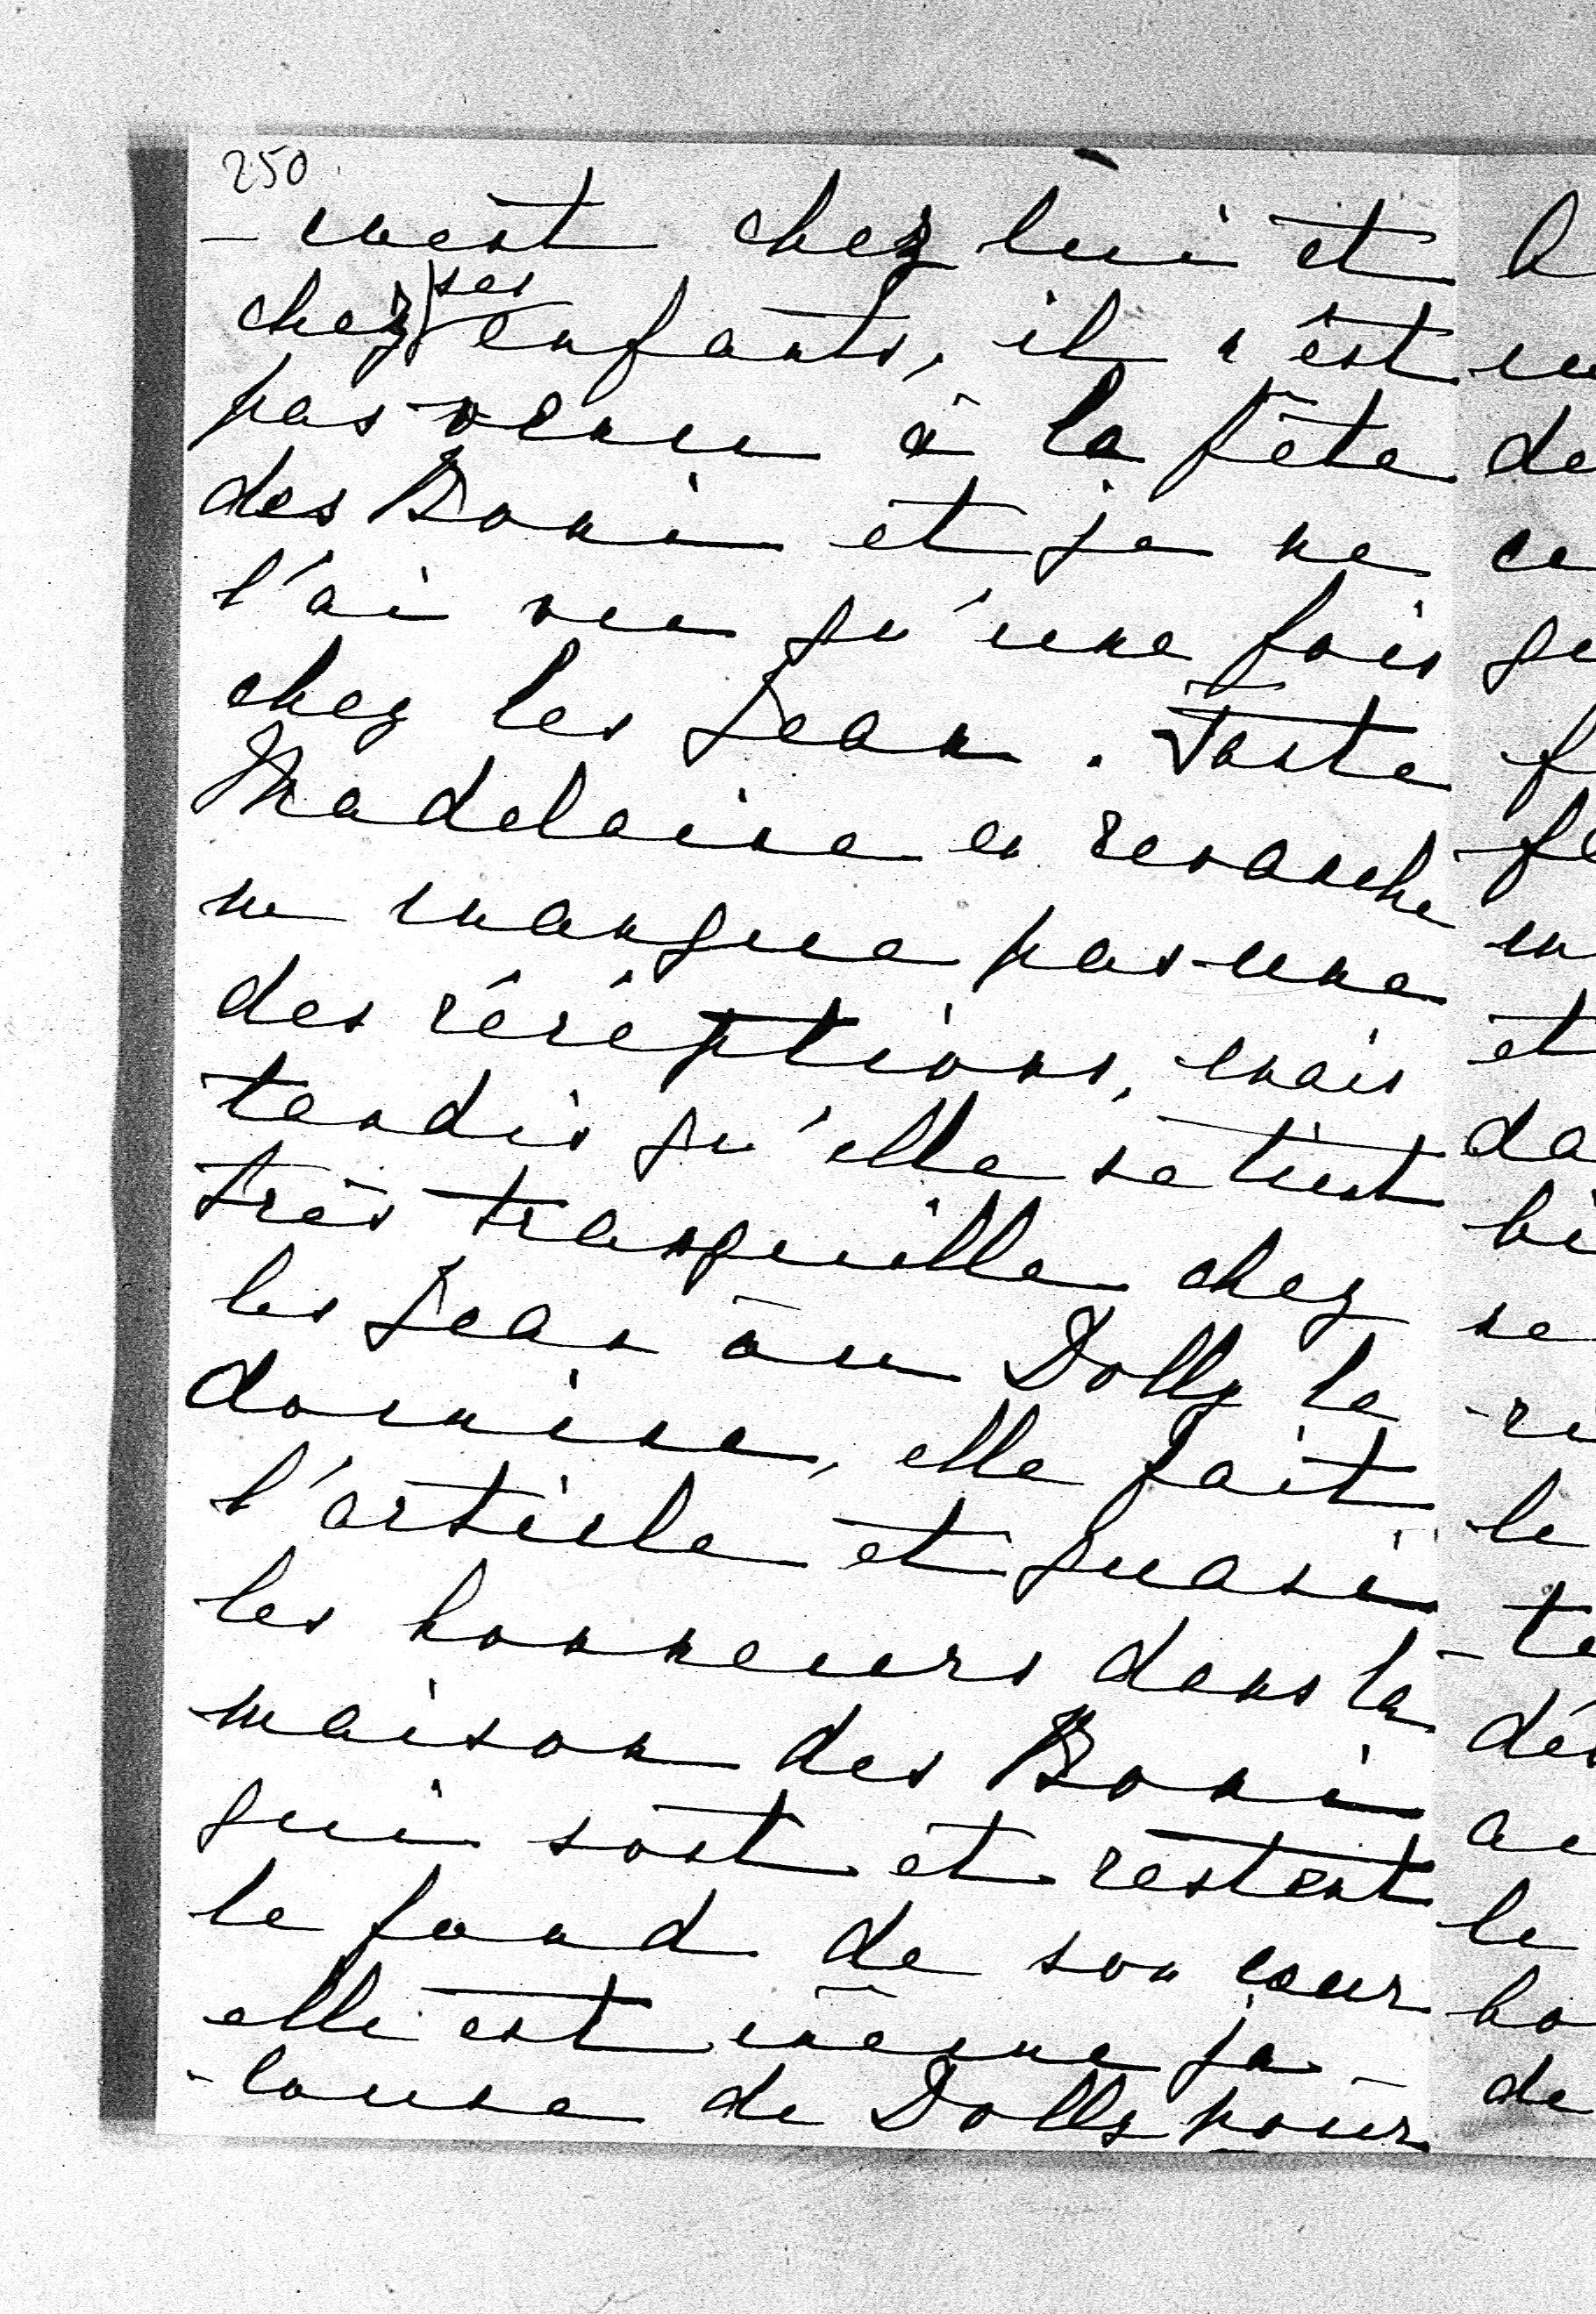 250
-ment chez lui et
chez ses enfants, il n'est
pas venu à la fête
des Boni et je ne
l'ai vu qu'une fois
chez les Jean. Tante
Madeleine en revanche
ne manque pas une
des réceptions, mais
tandis qu'elle se tient
très tranquille chez
les Jean où Dolly la
domine, elle fait
l'article et quasi
les honneurs dans la
maison des Boni
qui sont et restent
le fond de son cœur
elle est même ja-
-louse de Dolly pour